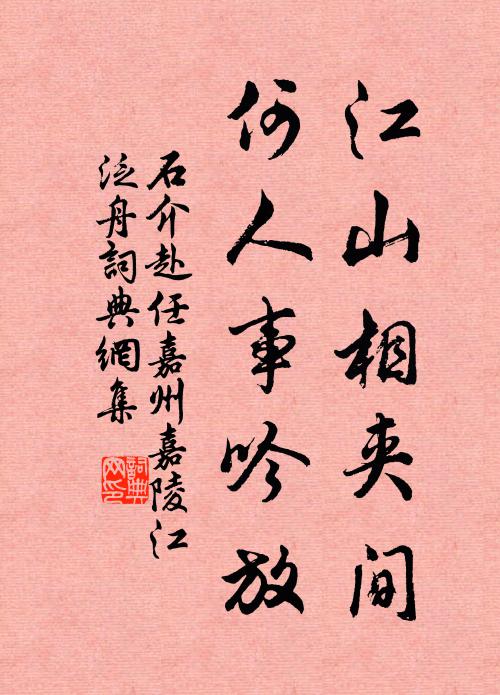 江山相夾間
何人事吟放
石介赴任嘉州嘉陵江
泛舟詞典網集
詞典網印